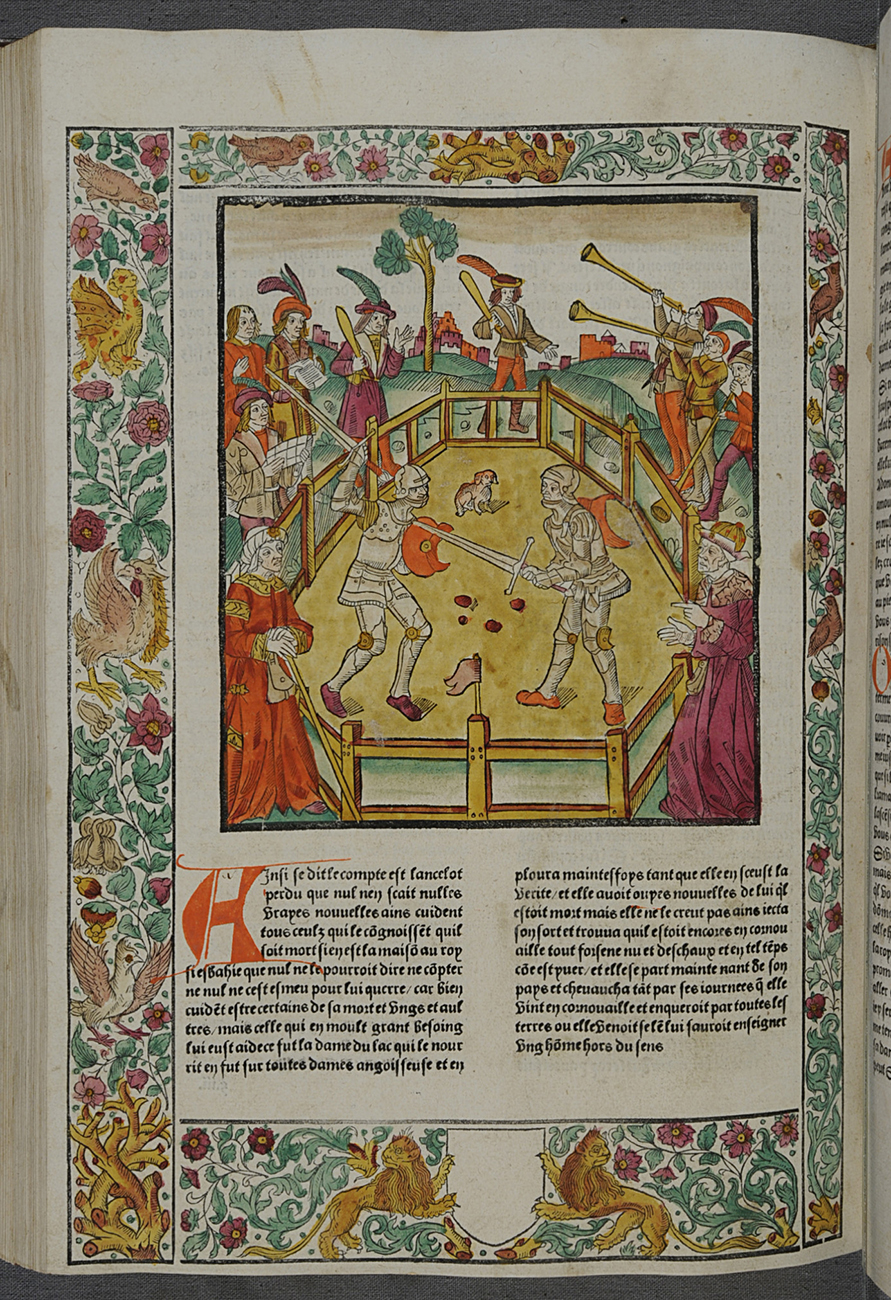 Ainsi se dit le compte est lancelot
perdu que nul neɳ scait nulles
vrayes nouuelles ains cuident
tous ceulx qui le cõgnoissẽt quil
soit mort si eɳ est la maisõ au roy
si esbahie que nul ne le pourroit dire ne cõpter
ne nul ne cest esmeu pour lui querre/ car bien
cuidẽt estre certains de sa mort et vngs et aul
tres/ mais celle qui eɳ moult grant besoing
lui eust aidece fut la dame du lac qui le nour
rit eɳ fut sur toutes dames angoisseuse et eɳ
ploura maintesfoys tant que elle eɳ sceust la
verite/ et elle auoit ouyes nouuelles de lui ql̃
estoit mort mais elle ne le creut pas ains iecta
soɳ sort et trouua quil estoit encores eɳ cornou
aille tout forsene nu et deschaux et eɳ tel tẽps
cõe est yuer/ et elle se part mainte nant de soɳ
pays et cheuaucha tãt par ses iournees q̃ elle
vint eɳ cornouaille et enqueroit par toutes les
terres ou elle venoit se lẽ lui sauroit enseigner
vng hõme hors du sens